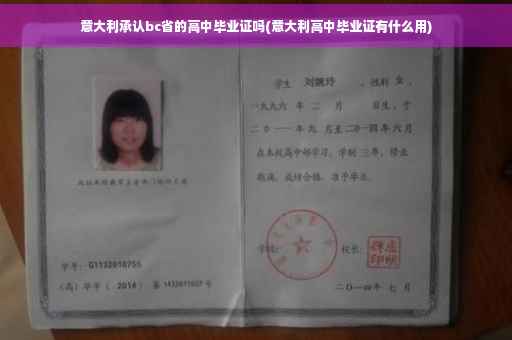 意大利承认bc省的高中毕业证吗(意大利高中毕业证有什么用)
学生 刘婉玲 ，性别 女 ，
一九九六 年 二 月 日生，于
二〇一一 年 九 月至二〇一四年 六 月
在本校高中部学习，学制 三 年，修业
期满，成绩合格，准予毕业。
学号： G1132010755
(高) 毕字 ( 2014 ) 第 1432011027 号
学校：
校长：
二〇一四年 七 月